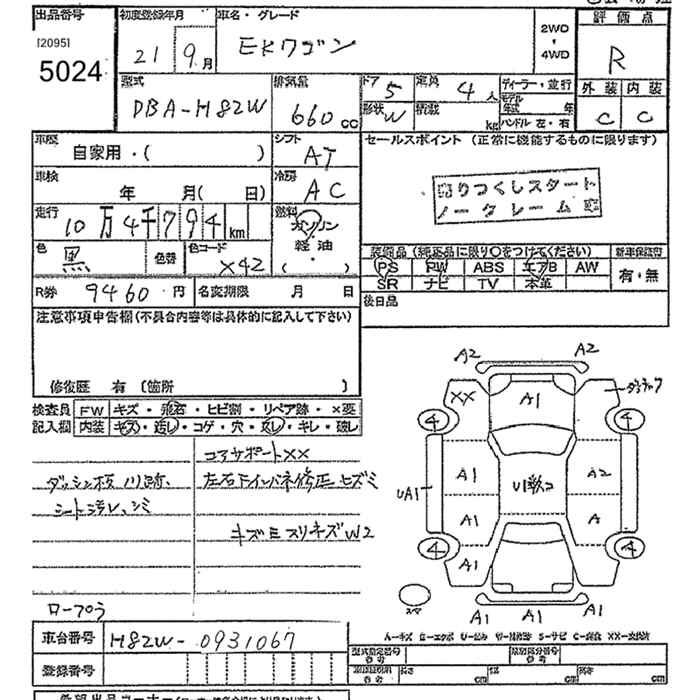 出品番号 初度登録年月 車名・グレード 2WD・4WD 評価点
[2095]
5024 21 9月 EKワゴン R
型式 排気量 ドア 5 定員 4人 ディーラー・並行 外装 内装
DBA-H82W 660cc 形状 W 積載 kg モデル年式 年 ハンドル 左・右 C C
車歴 自家用・( ) シフト AT セールスポイント (正常に機能するものに限ります)
車検 年 月( 日) 冷房 AC 売りつくしスタート
走行 10万4千794km 燃料 ガソリン・軽油・( ) ノークレーム
色 黒 色替 色コード X42 装備品 (純正品に限り○をつけてください) 新車保証書
PS PW ABS エアB AW 有・無
SR ナビ TV 本革
R券 9460円 名変期限 月 日 後日品
注意事項申告欄 (不具合内容等は具体的に記入して下さい)
修復歴 有 (箇所 )
検査員 FW キズ・飛石・ヒビ割・リペア跡・×要
記入欄 内装 キズ・汚レ・コゲ・穴・スレ・キレ・破レ
コアサポートXX
左右Fインパネ修正 ヒズミ
シート汚レ、シミ
キズミスリキズW2
A2 A2
XX A1
4 4
A1 A2
UA1
A1 A
4 4
A1 A1 A1
車台番号 H82W-0931067
型式指定番号 参考 類別区分番号 参考
登録番号 長さ cm 幅 cm 高さ cm